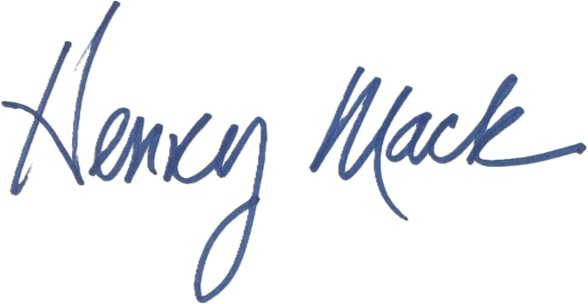 Henry Mack